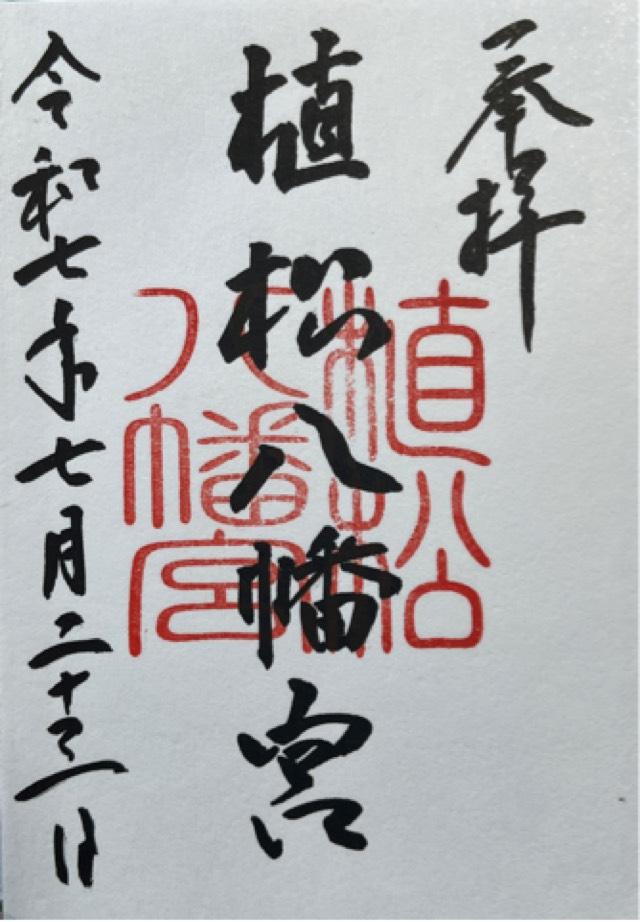 奉拝
植松八幡宮
植松
八幡宮
令和七年七月二十三日